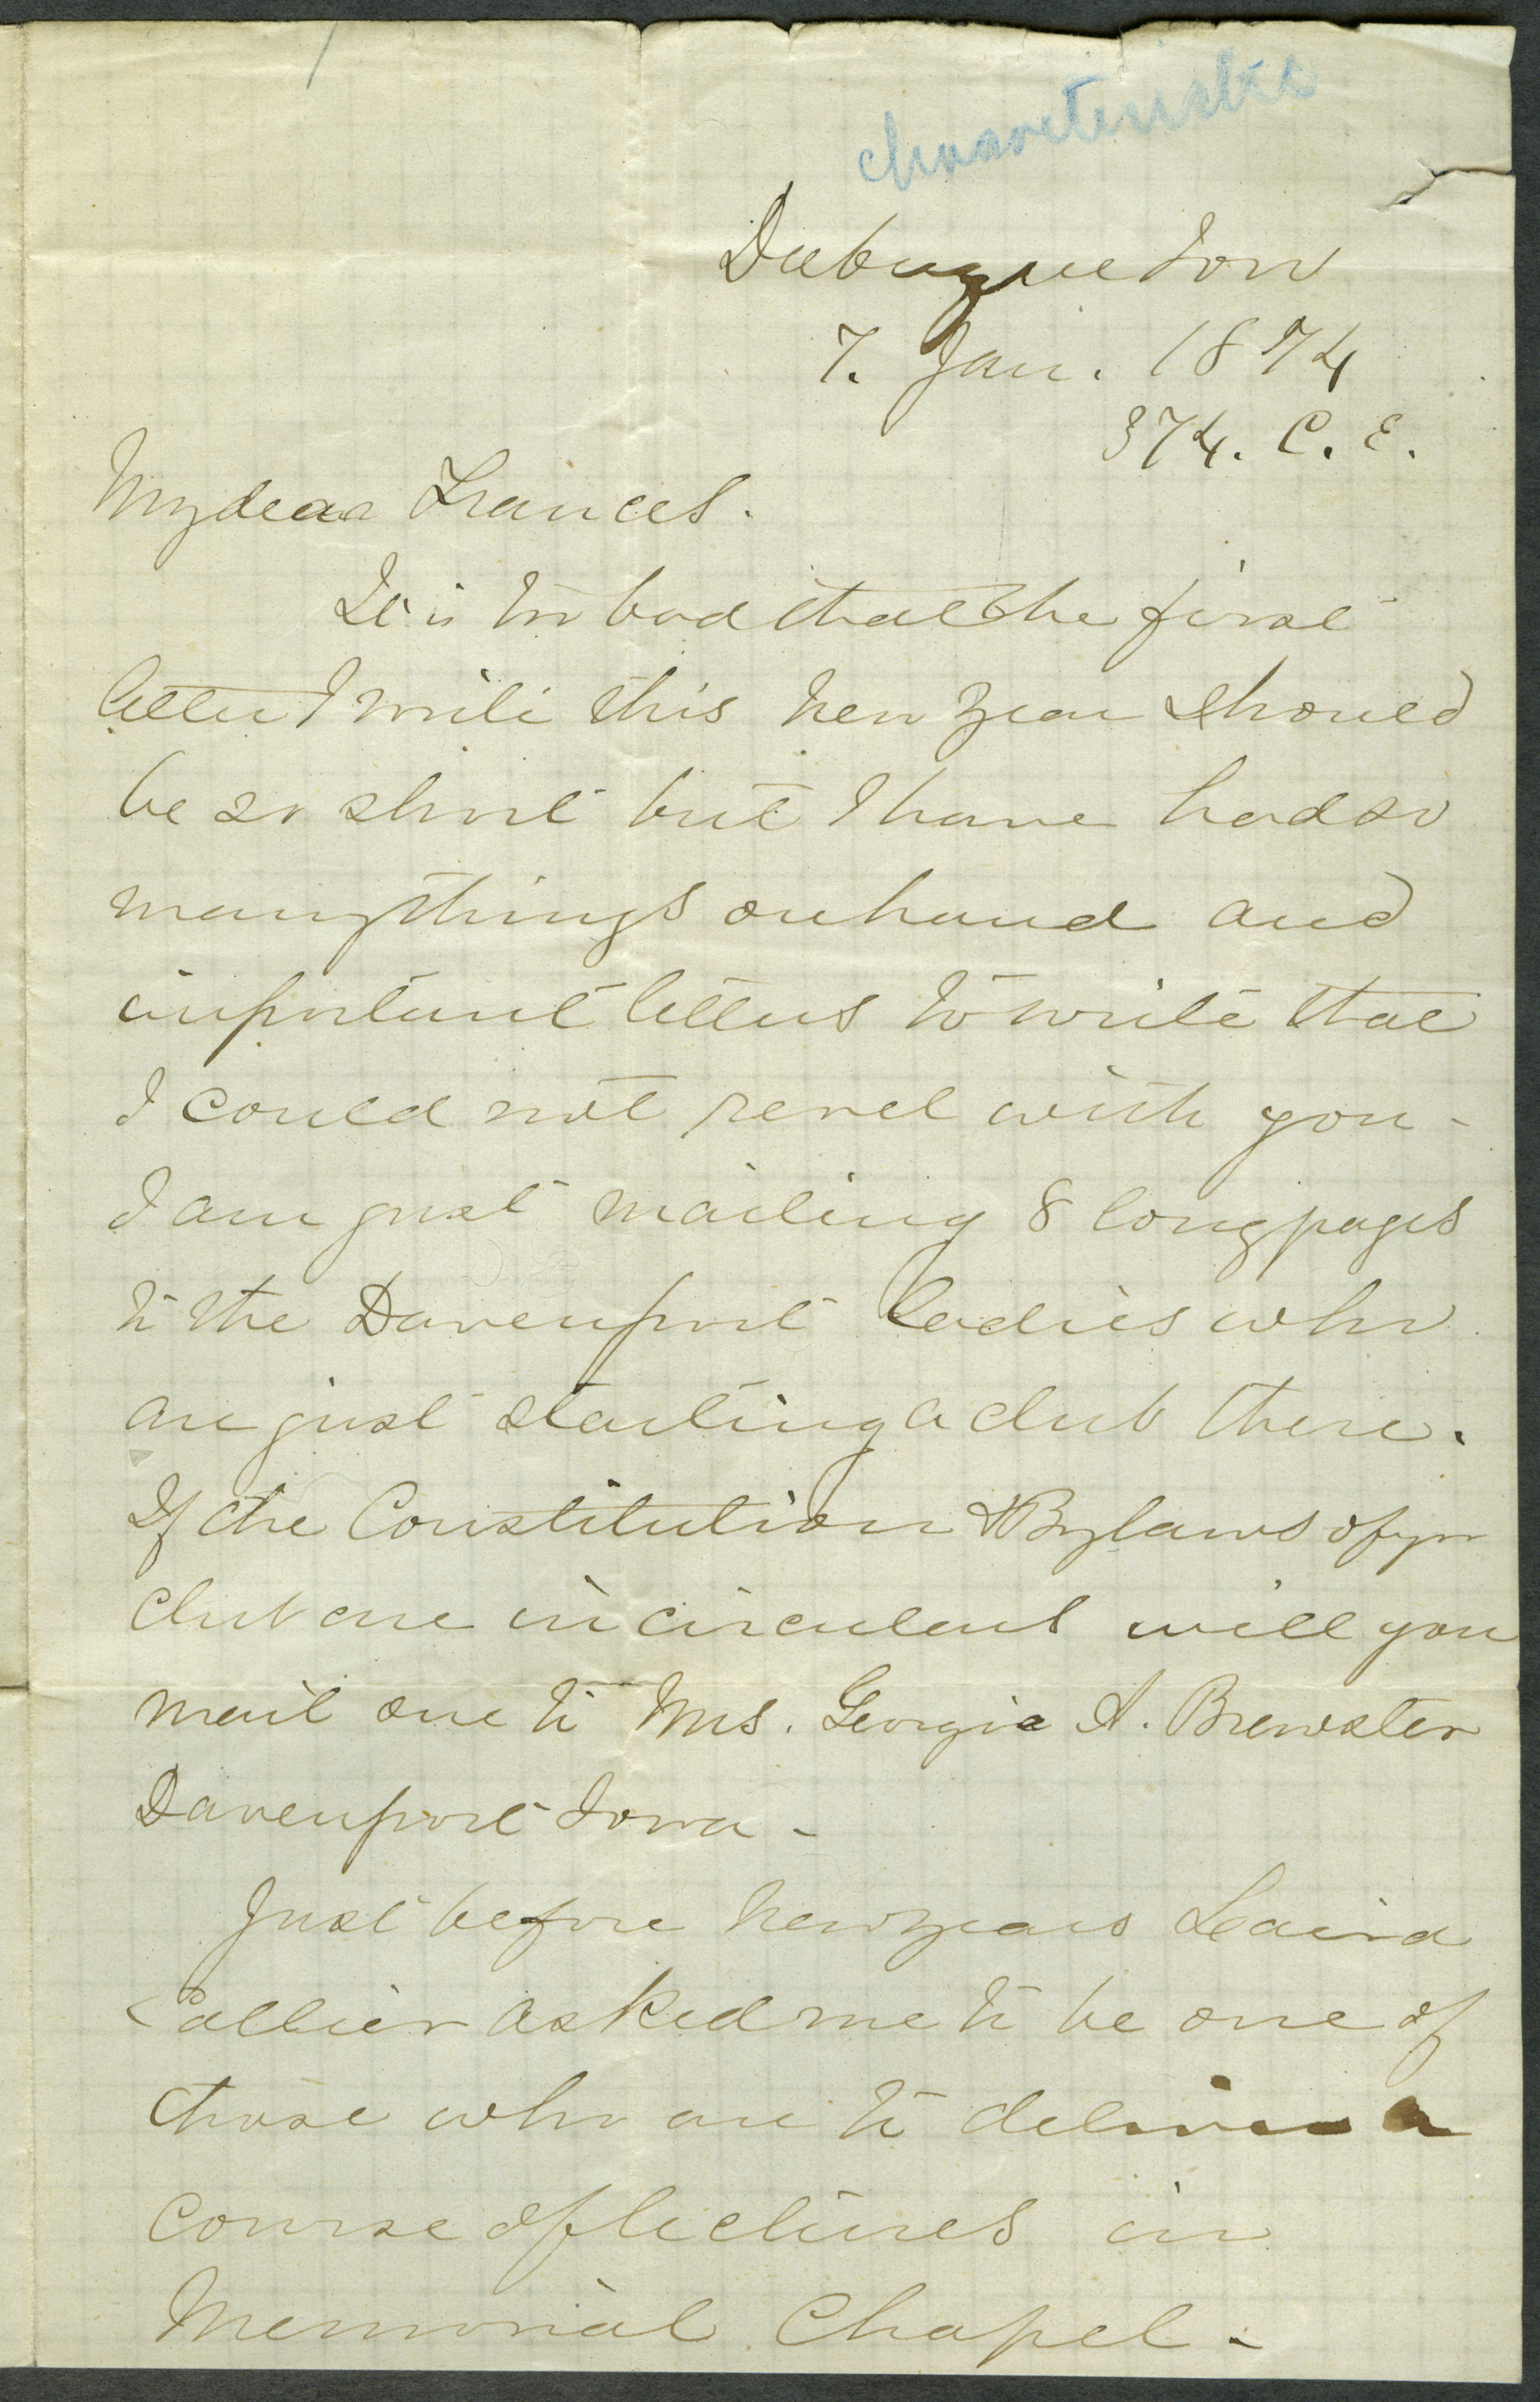 characteristic
Dubuque Iow
7. Jan. 1874
374. C. E.
My dear Frances.
It is too bad that the first
letter I write this New Year should
be so short but I have had so
many things on hand and
important letters to write that
I could not revel with you -
I am just mailing 8 long pages
to the Davenport ladies who
are just starting a club there.
If the Constitution & Bylaws of yr
club are in circulars will you
mail one to Mrs. Georgie A. Brewster
Davenport Iowa -
Just before New Years Laird
Collier asked me to be one of
those who are to deliver a
course of lectures in
Memorial Chapel -